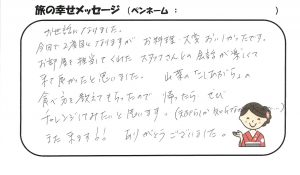 旅の幸せメッセージ (ペンネーム : )
お世話になりました。
今回で2回目になりますが お料理 大変 おいしかったです。
お部屋を担当してくれた スタッフさんとの会話が楽しくて
来て良かったと思いました。 山菜の
食べ方を教えてもらったので 帰ったら ぜひ
チャレンジしてみたいと思います。
また 来ます!! ありがとうございました。